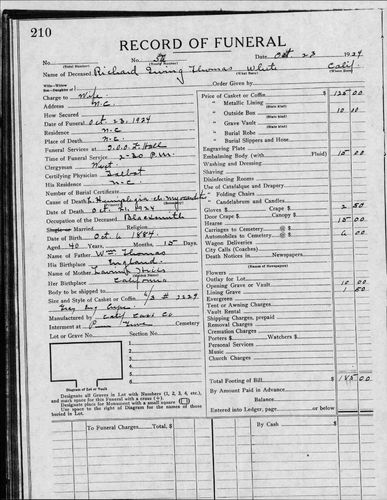 210
RECORD OF FUNERAL
No. No. 54 Date Oct 23 1924
(Total Number) (Yearly Number)
Name of Deceased Richard Thomas White Calif.
(What Race) (Where Born)
Wife—Widow
Son—Daughter of
Order Given by
Charge to Wife
Address N.C.
How Secured
Date of Funeral Oct 23, 1924
Residence N.C.
Place of Death N.C.
Funeral Services at I.O.O.F. Hall
Time of Funeral Service 2-30 P.M.
Clergyman West
Certifying Physician Talbot
His Residence N.C.
Number of Burial Certificate
Cause of Death
Date of Death Oct 21, 1924
Occupation of the Deceased Blacksmith
Single or Married Religion
Date of Birth Oct 6, 1884.
Aged 40 Years, Months, 15 Days
Name of Father Wm Thomas
His Birthplace England
Name of Mother
Her Birthplace California
Body to be shipped to
Size and Style of Casket or Coffin 6/3 # 2229
Grey
Manufactured by Calif Cask Co
Interment at Cemetery
Lot or Grave No. Section No.
1
2
3
4
5
6
Diagram of Lot or Vault
Designate all Graves in Lot with Numbers (1, 2, 3, 4, etc.),
and mark space for this Funeral with a cross (+).
Designate place for Monument with a small square
Use space to right of Diagram for the names of those
buried in Lot.
Price of Casket or Coffin $ 125 00
" Metallic Lining
(State Kind)
" Outside Box 10 10
(State Kind)
" Grave Vault
(State Kind)
" Burial Robe
" Burial Slippers and Hose
Engraving Plate
Embalming Body (with Fluid) 15 00
Washing and Dressing
Shaving
Disinfecting Rooms
Use of Catafalque and Drapery
" Folding Chairs
" Candelabrum and Candles
Gloves $ Crape $ 2 50
Door Crape $ Canopy $
Hearse 15 00
Carriages to Cemetery @ $
Automobiles to Cemetery @ $ 6 00
Wagon Deliveries
City Calls (Coaches)
Death Notices in Newspapers
(Names of Newspapers)
Flowers
Outlay for Lot
Opening Grave or Vault 10 00
Lining Grave 1 50
Evergreen
Tent or Awning Charges
Vault Rental
Shipping Charges, prepaid
Removal Charges
Cremation Charges
Porters $ Watchers $
Personal Services
Music
Church Charges
Total Footing of Bill $ 185 00
By Amount Paid in Advance
Balance
Entered into Ledger, page or below
To Funeral Charges Total, $
By Cash $